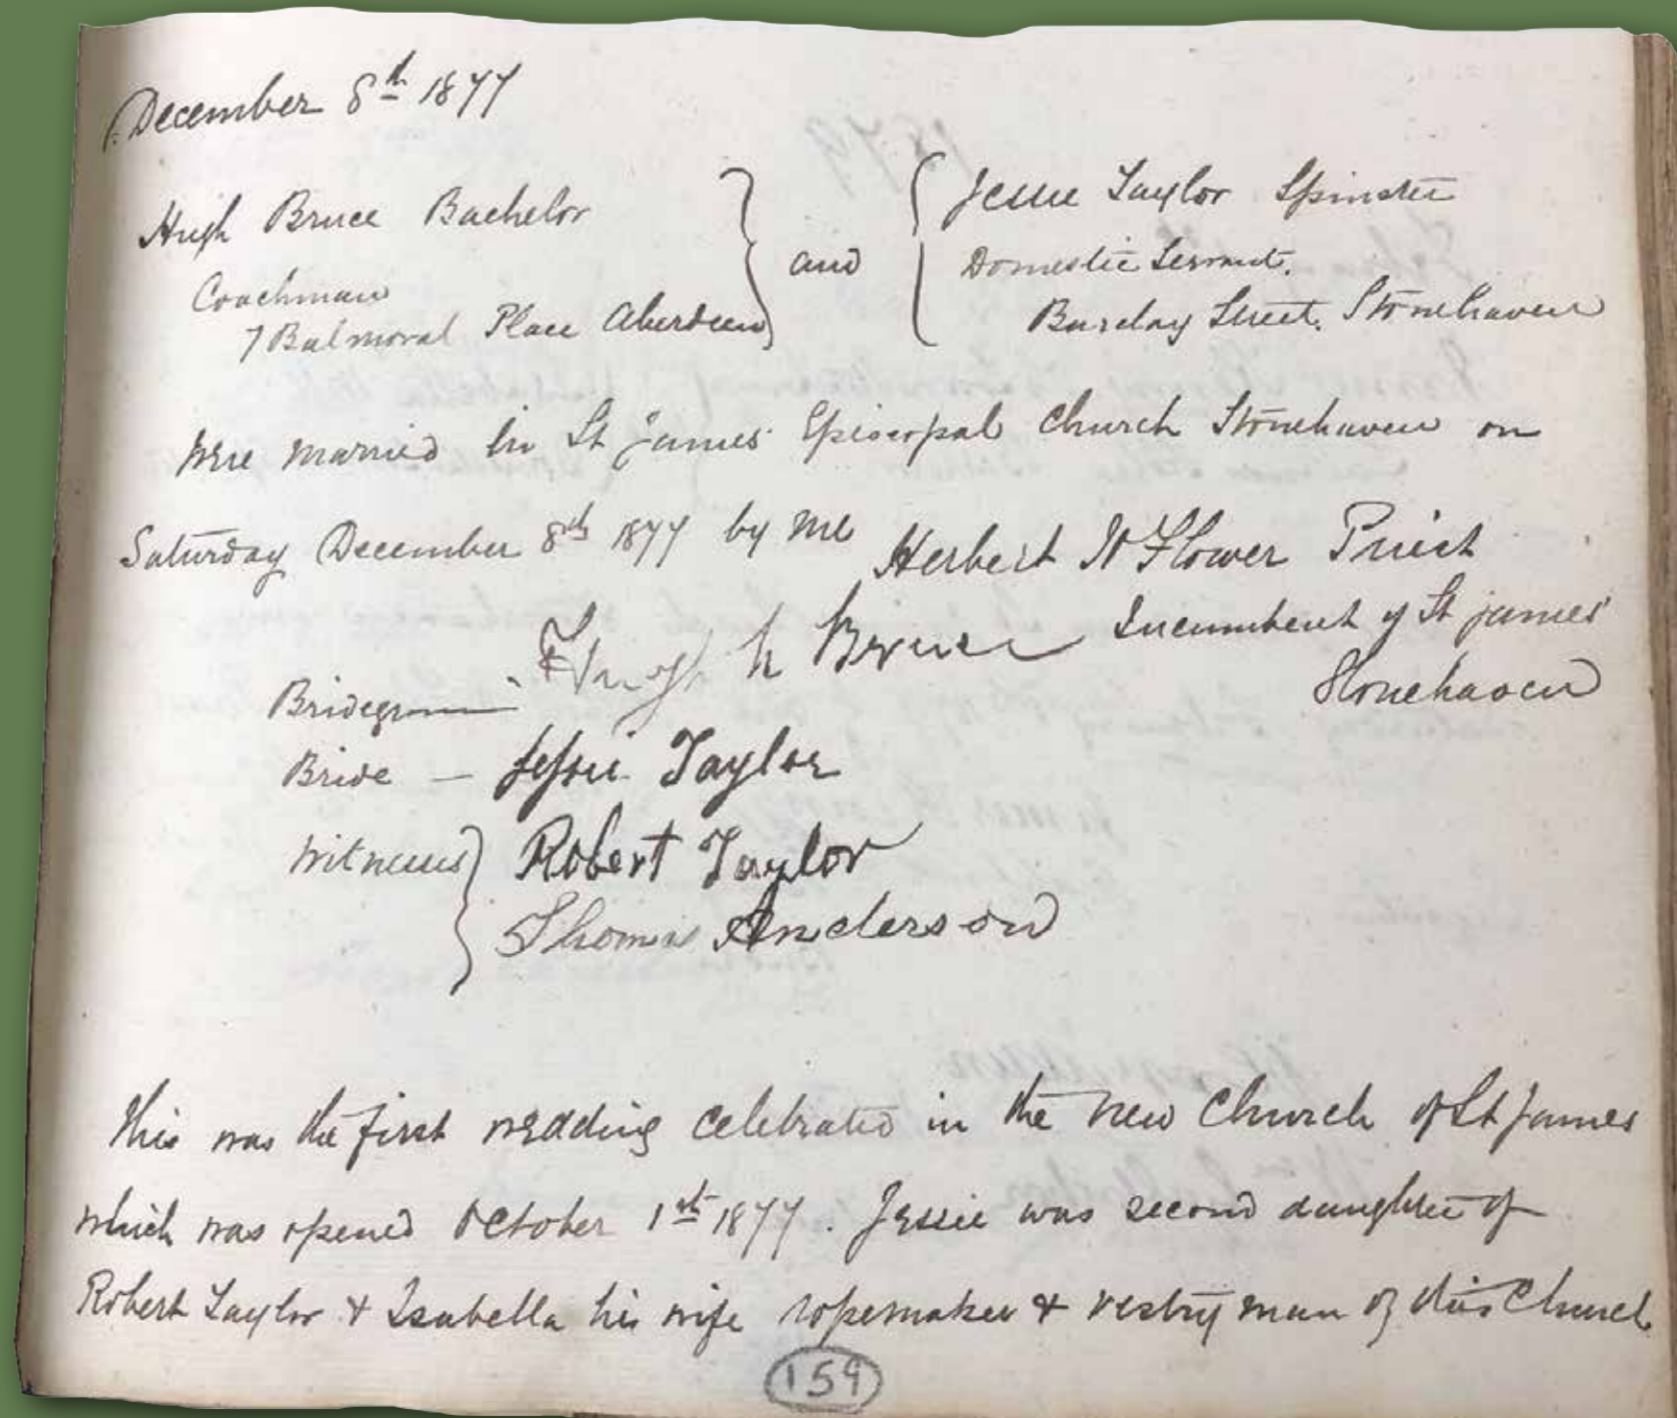 December 8th 1877
Hugh Bruce Bachelor
Coachman
7 Balmoral Place Aberdeen
and
Jessie Taylor Spinster
Domestic Servant.
Barclay Street. Stonehaven
were married in St James' Episcopal Church Stonehaven on
Saturday December 8th 1877 by me Herbert W Flower Priest
Incumbent of St James'
Stonehaven
Bridegroom Hugh Bruce
Bride — Jessie Taylor
Witnesses Robert Taylor
Thomas Anderson
This was the first wedding celebrated in the new Church of St James
which was opened October 1st 1877. Jessie was second daughter of
Robert Taylor & Isabella his wife ropemaker & vestryman of this Church
159